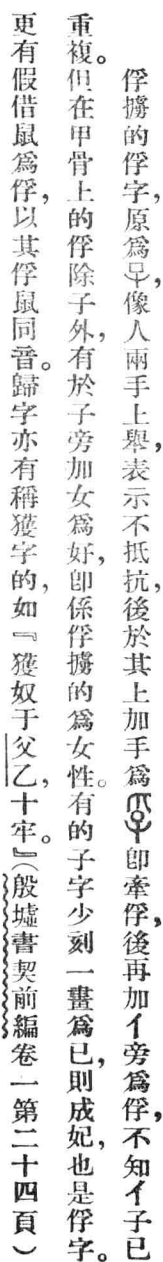 俘擄的俘字，原爲𠂹，像人兩手上舉，表示不抵抗，後於其上加手爲孚卽牽俘，後再加亻旁爲俘，不知亻子已
重複。但在甲骨上的俘除子外，有於子旁加女爲好，卽係俘擄的爲女性。有的子字少刻一畫爲已，則成妃，也是俘字。
更有假借鼠爲俘，以其俘鼠同音。歸字亦有稱獲字的，如『獲奴于父乙，十牢。』（殷墟書契前編卷一第二十四頁）